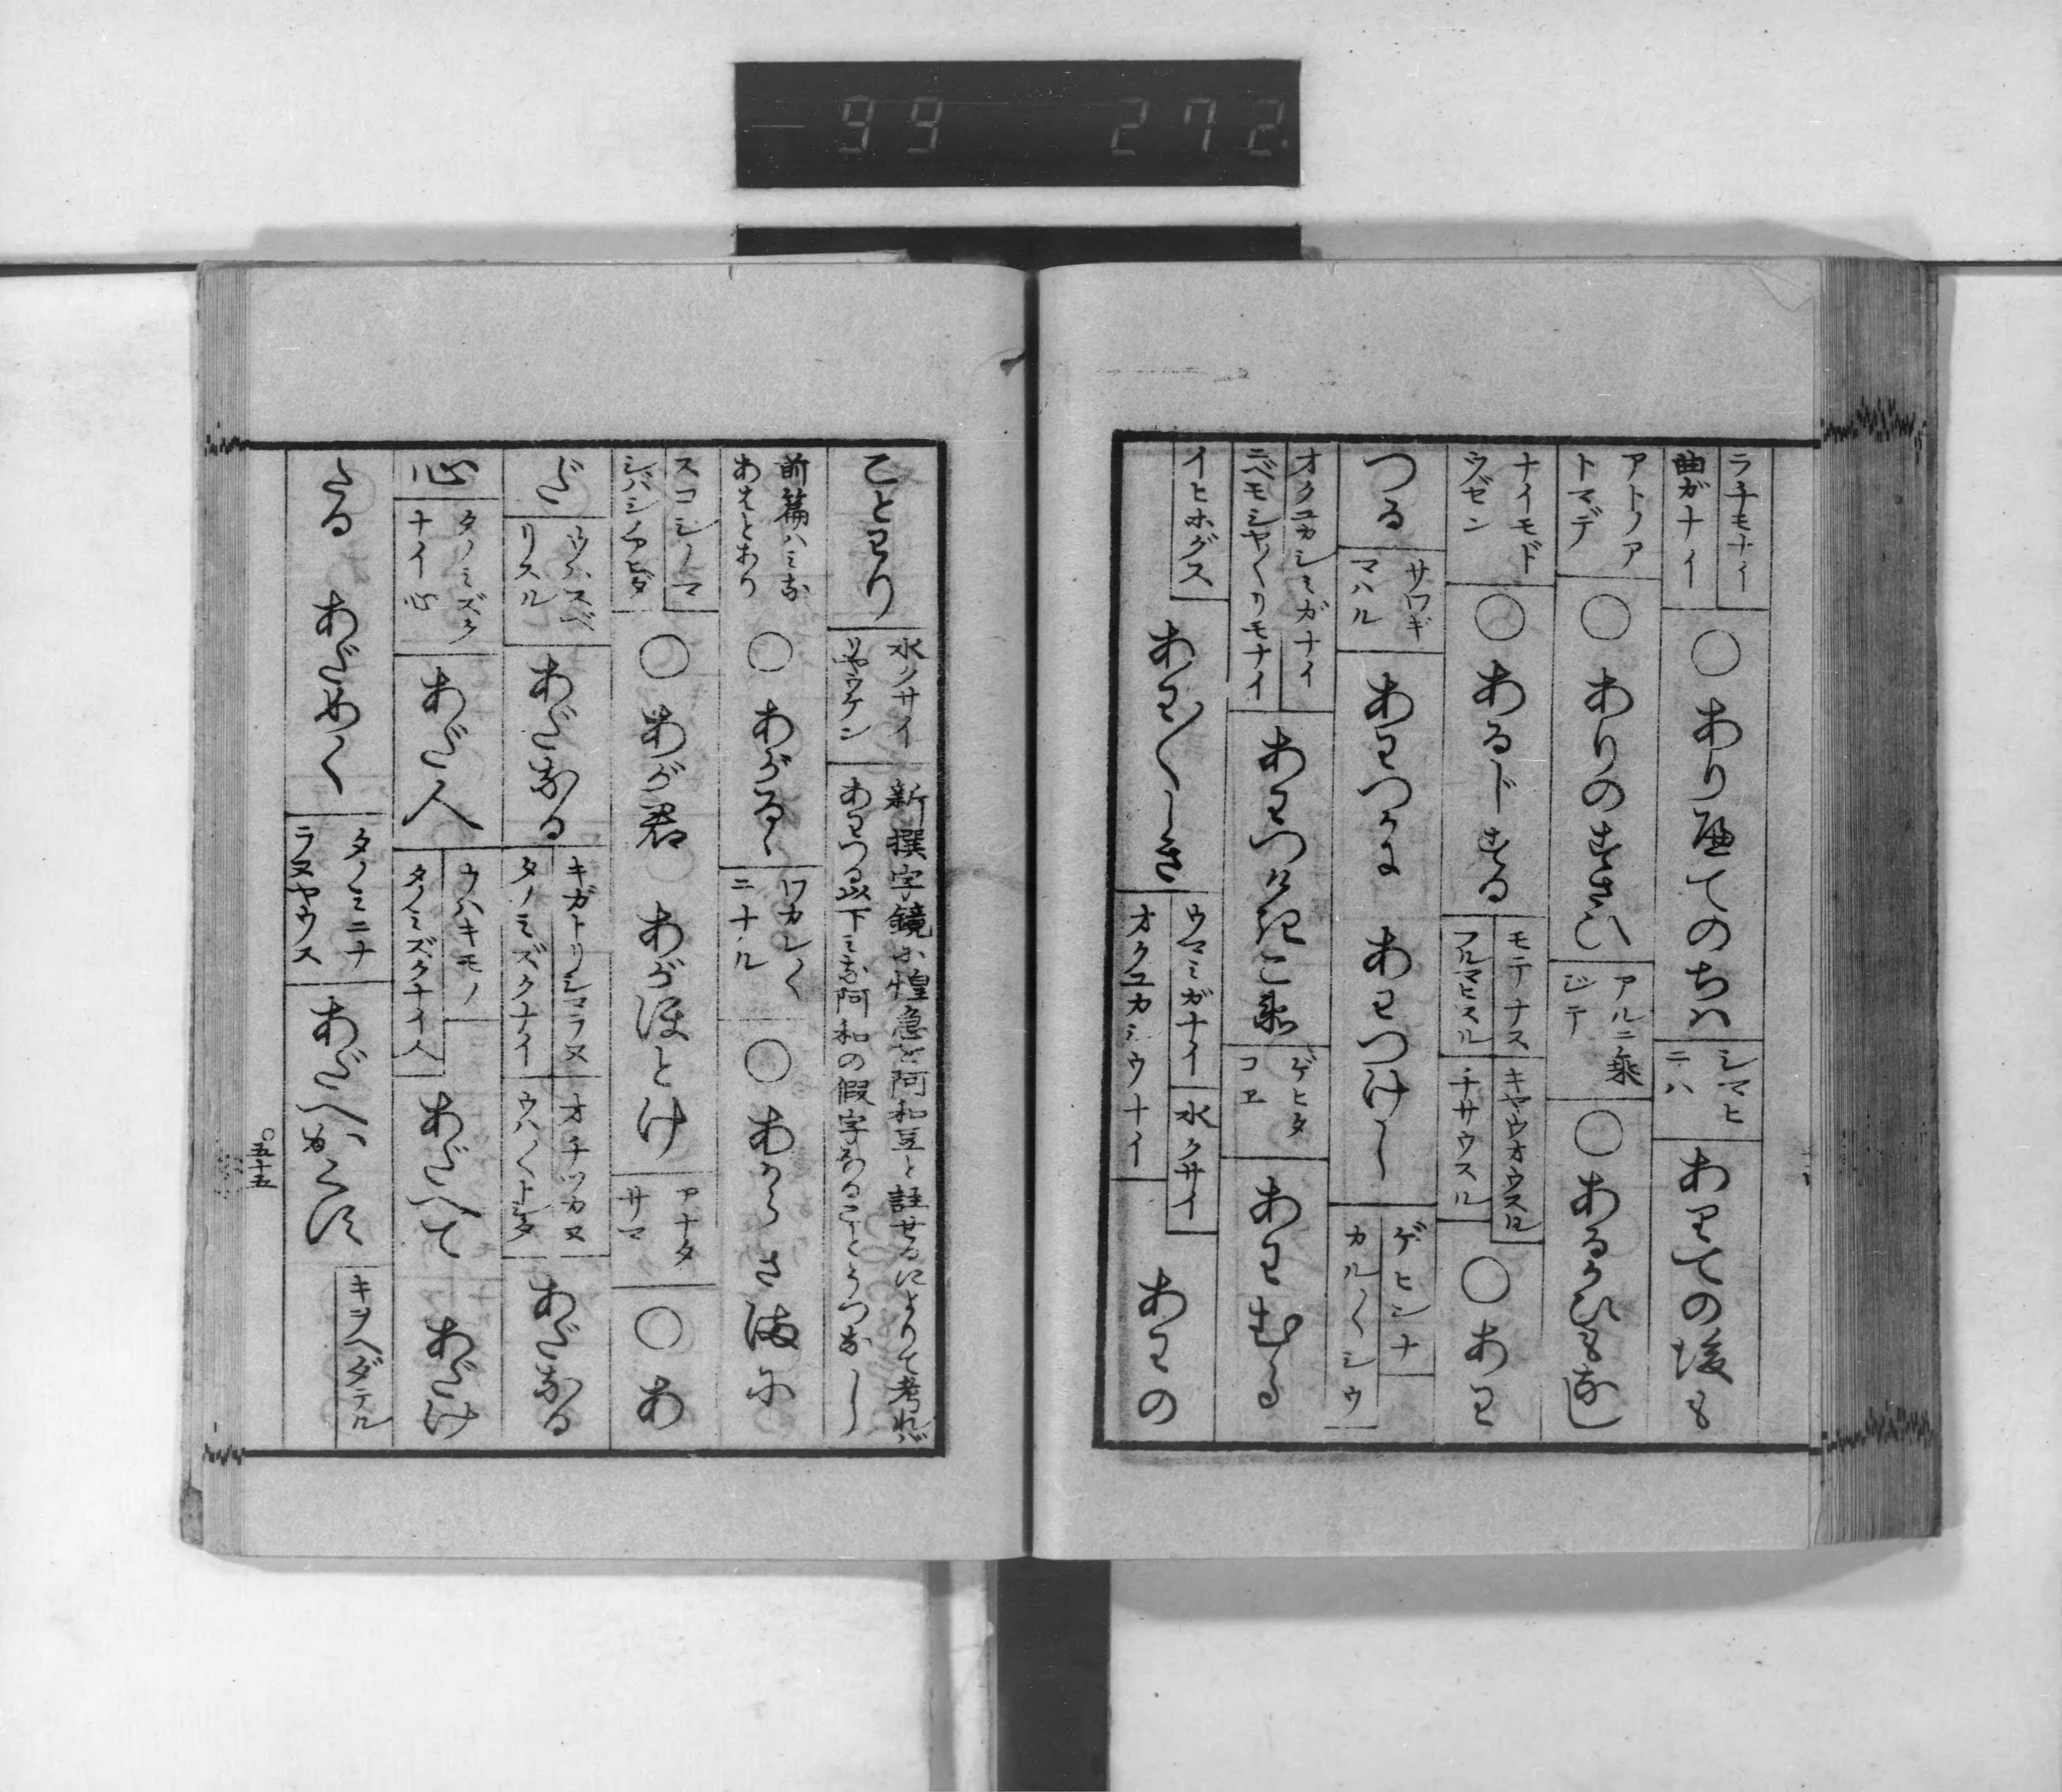 99 272
ラチモナイ
曲ガナイ
○あり經てのちハ
シマヒ
ニハ
ありての後も
アトノア
トマデ
○ありのすさひ
アルニ乘
ジテ
○あるかひもなし
ナイモド
ウゼン
○あるじする
モテナス
フルマヒスル
キヤウオウスル
チサウスル
○あわ
つる
サワギ
マハル
あわつかに
あわつけし
ゲヒシナ
カル〳〵シウ
オクユカシミガナイ
ニベモシヤ〳〵リモナイ
あわつけきこゑ
ゲヒタ
コヱ
あわむる
イヒホグス
あわ〳〵しき
ウマミガナイ
オクユカシウナイ
水クサイ
あわの
ことわり
水クサイ
リヤウケン
新撰字鏡に惶急を阿和豆と註せるによりて考れバ
あわつる以下ミな阿和の假字なることうつなし
前篇ハミな
あはとあり
○あがるゝ
ワカレ〳〵
ニナル
○あからさまに
スコシノマ
シバシノアヒダ
○あが君
あがほとけ
アナタ
サマ
○あ
だ
ウハスベ
リスル
あだなる
キガトリシマラヌ
タノミズクナイ
オチツカヌ
ウハ〳〵トシタ
あだなる
心
タノミズク
ナイ心
あだ人
ウハキモノ
タノミズクナイ人
あだへて
あだけ
たる
あだめく
タノミニナ
ラヌヤウス
あだへかくす
キヲヘダテル
○五十五